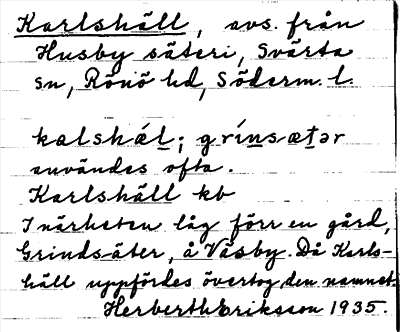 Karlshäll, avs. från
Husby säteri, Svärta
sn, Rönö hd, Söderm. l.
kalshǽl; grínsætər
användes ofta.
Karlshäll kb
I närheten låg förr en gård,
Grindsäter, å Väsby. Då Karls-
häll uppfördes övertog den namnet.
Herberth Eriksson 1935.